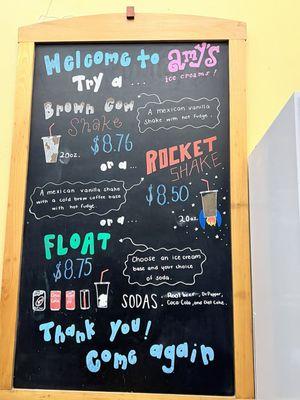 Welcome to amy's
ice creams!
Try a ...
Brown Cow
Shake
A mexican vanilla
shake with hot fudge.
$8.76
20oz.
or a...
ROCKET
SHAKE
A mexican vanilla shake
with a cold brew coffee base
with hot fudge.
$8.50
20oz.
or a ...
FLOAT
$8.75
Choose an ice cream
base and your choice
of soda.
SODAS: Root beer, Dr.Pepper,
Coca-Cola, and Diet Coke.
Thank you!
Come again